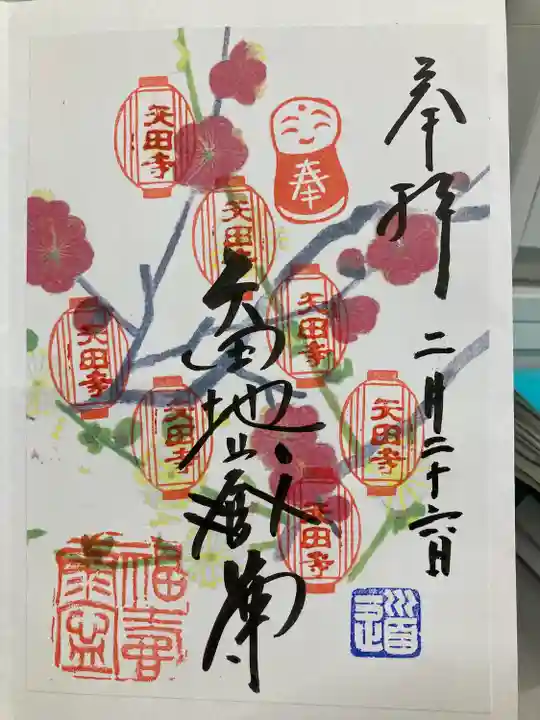 奉拝
二月二十六日
矢田地蔵尊
奉
矢田寺
矢田寺
矢田寺
矢田寺
矢田寺
矢田寺
矢田寺
福寿